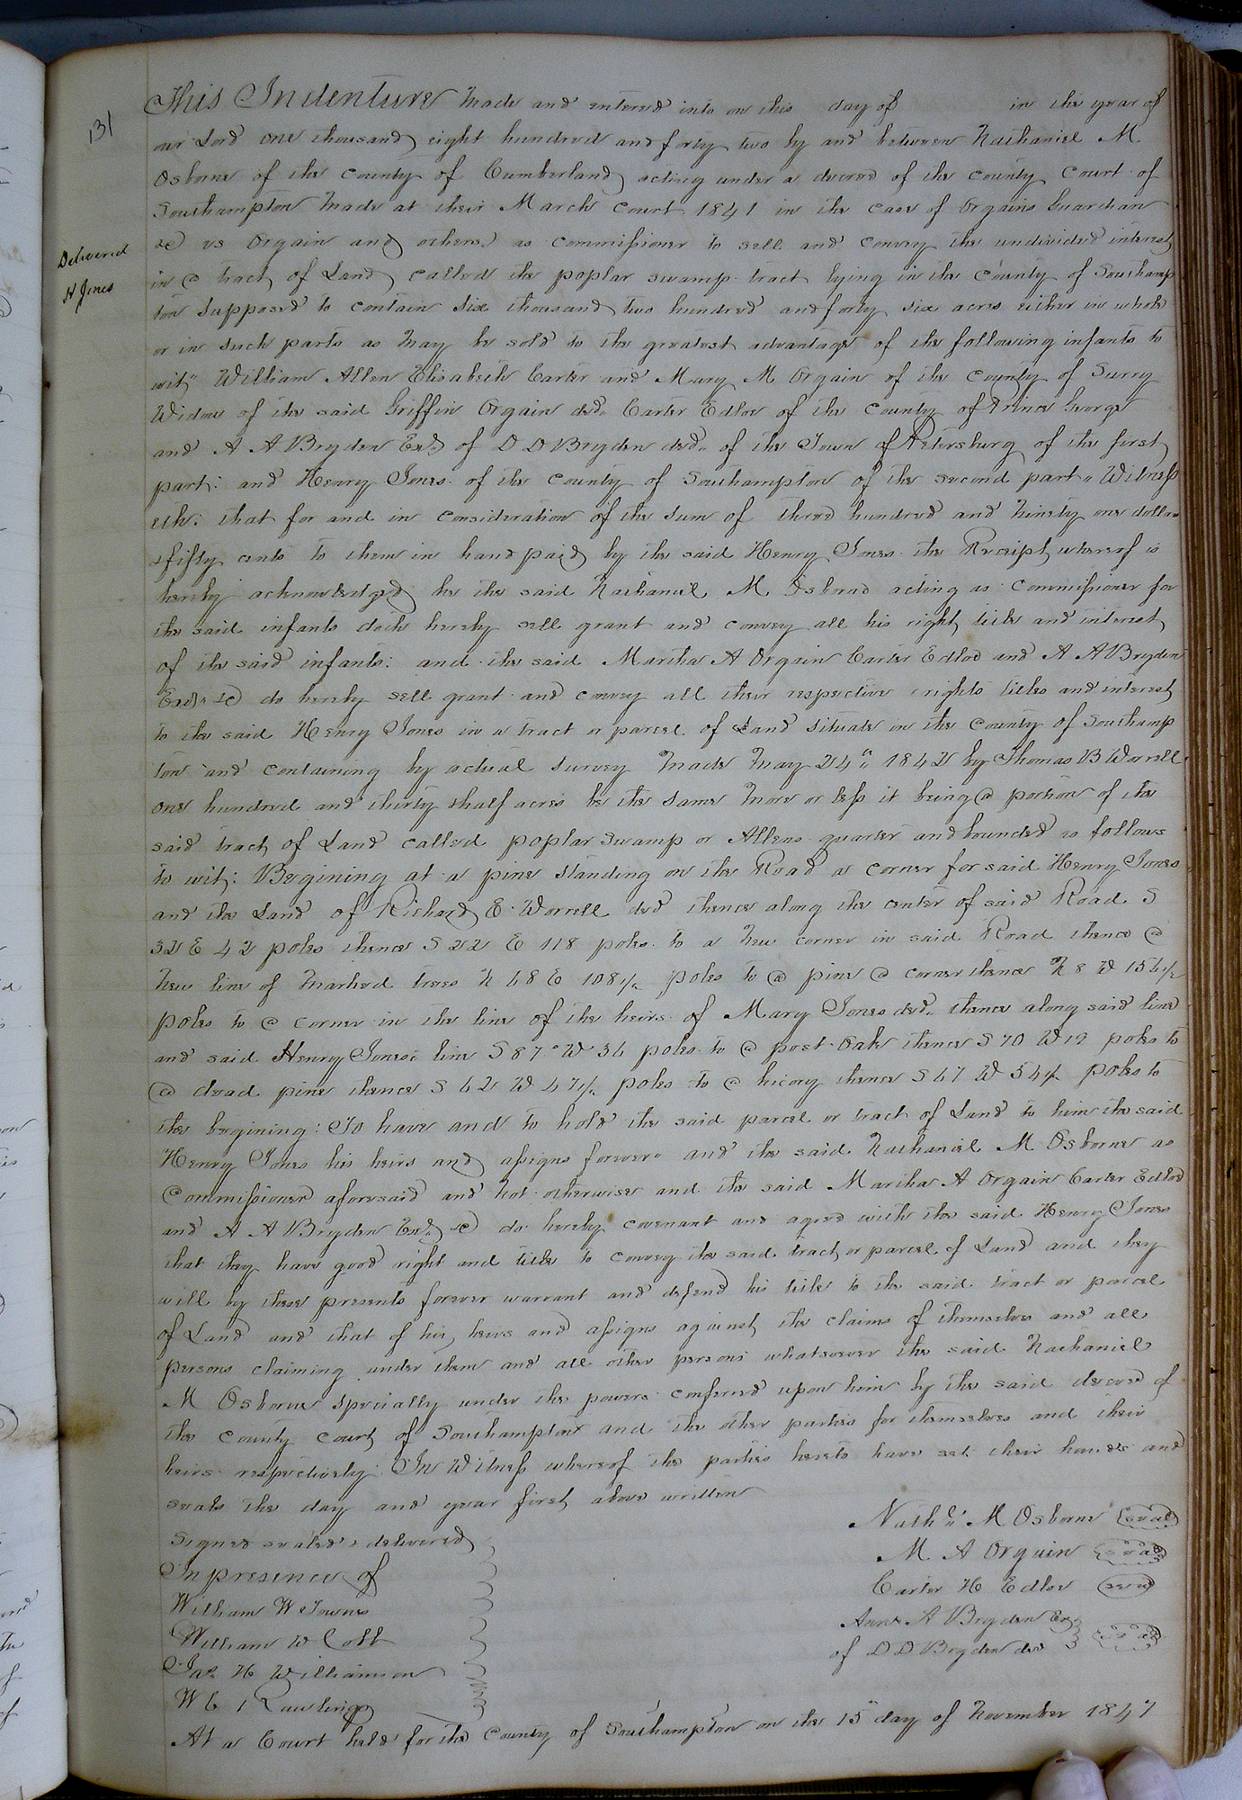 131
Delivered
H Jones
This Indenture made and entered into on this day of in the year of
our Lord one thousand eight hundred and forty two by and between Nathaniel M
Osborne of the county of Cumberland acting under a decree of the county court of
Southampton made at their March court 1841 in the case of Orgains Guardian
&c vs Orgain and others as commissioner to sell and convey the undivided interest
in a tract of Land called the poplar swamp tract lying in the county of Southamp
ton supposed to contain six thousand two hundred and forty six acres either in whole
or in such parts as may be sold to the greatest advantage of the following infants to
wit William Allen Elisabeth Carter and Mary M Orgain of the county of Surry
Widow of the said Griffin Orgain decd. Carter Edloe of the county of Prince George
and A A Bryden Exx of D D Bryden decd. of the Town of Petersburg of the first
part: and Henry Jones of the county of Southampton of the second part Witness
eth: that for and in consideration of the sum of three hundred and ninety one dollars
& fifty cents to them in hand paid by the said Henry Jones the Receipt whereof is
hereby acknowledged he the said Nathaniel M Osborne acting as commissioner for
the said infants doth hereby sell grant and convey all his right title and interest
of the said infants: and the said Martha A Orgain Carter Edloe and A A Bryden
Exx &c do hereby sell grant and convey all their respective rights titles and interest
to the said Henry Jones in a tract or parcel of Land situate in the county of Southamp
ton and containing by actual survey made May 24th 1842 by Thomas B Worrell
one hundred and thirty & half acres be the same more or less it being a portion of the
said tract of Land called poplar swamp or Allens quarter and bounded as follows
to wit: Begining at a pine standing on the Road a corner for said Henry Jones
and the Land of Richard E Worrell decd thence along the center of said Road S
32 E 42 poles thence S 22 E 118 poles to a new corner in said Road thence a
new line of marked trees N 68 E 108½ poles to a pine a corner thence N 8 W 156½
poles to a corner in the line of the heirs of Mary Jones decd. thence along said line
and said Henry Jones line S 87° W 36 poles to a post Oak thence S 70 W 12 poles to
a dead pine thence S 62 W 47½ poles to a hicory thence S 67 W 54½ poles to
the begining: To have and to hold the said parcel or tract of Land to him the said
Henry Jones his heirs and assigns forever and the said Nathaniel M Osborne as
Commissioner aforesaid and not otherwise and the said Martha A Orgain Carter Edloe
and A A Bryden Exx &c do hereby covenant and agree with the said Henry Jones
that they have good right and title to convey the said tract or parcel of Land and they
will by these presents forever warrant and defend his title to the said tract or parcel
of Land and that of his heirs and assigns against the claims of themselves and all
persons claiming under them and all other persons whatsoever the said Nathaniel
M Osborne specially under the powers confered upon him by the said decree of
the county court of Southampton and the other parties for themselves and their
heirs respectively. In Witness whereof the parties hereto have set their hands and
seals the day and year first above written
Signed sealed & delivered
In presence of
William W Towns
William W Cobb
Jas H Williamson
W C Rawlings
Nathl M Osborne seal
M A Orgain seal
Carter H Edloe seal
Ann A Bryden Exx
of D D Bryden decd seal
At a Court held for the County of Southampton on the 15th day of November 1847